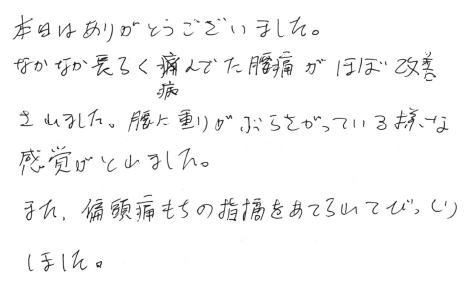 本日はありがとうございました。
なかなか長らく痛んでた腰痛がほぼ改善
病
されました。腰に重りがぶらさがっている様な
感覚がとれました。
また、偏頭痛もちの指摘をあてられてびっくり
しました。